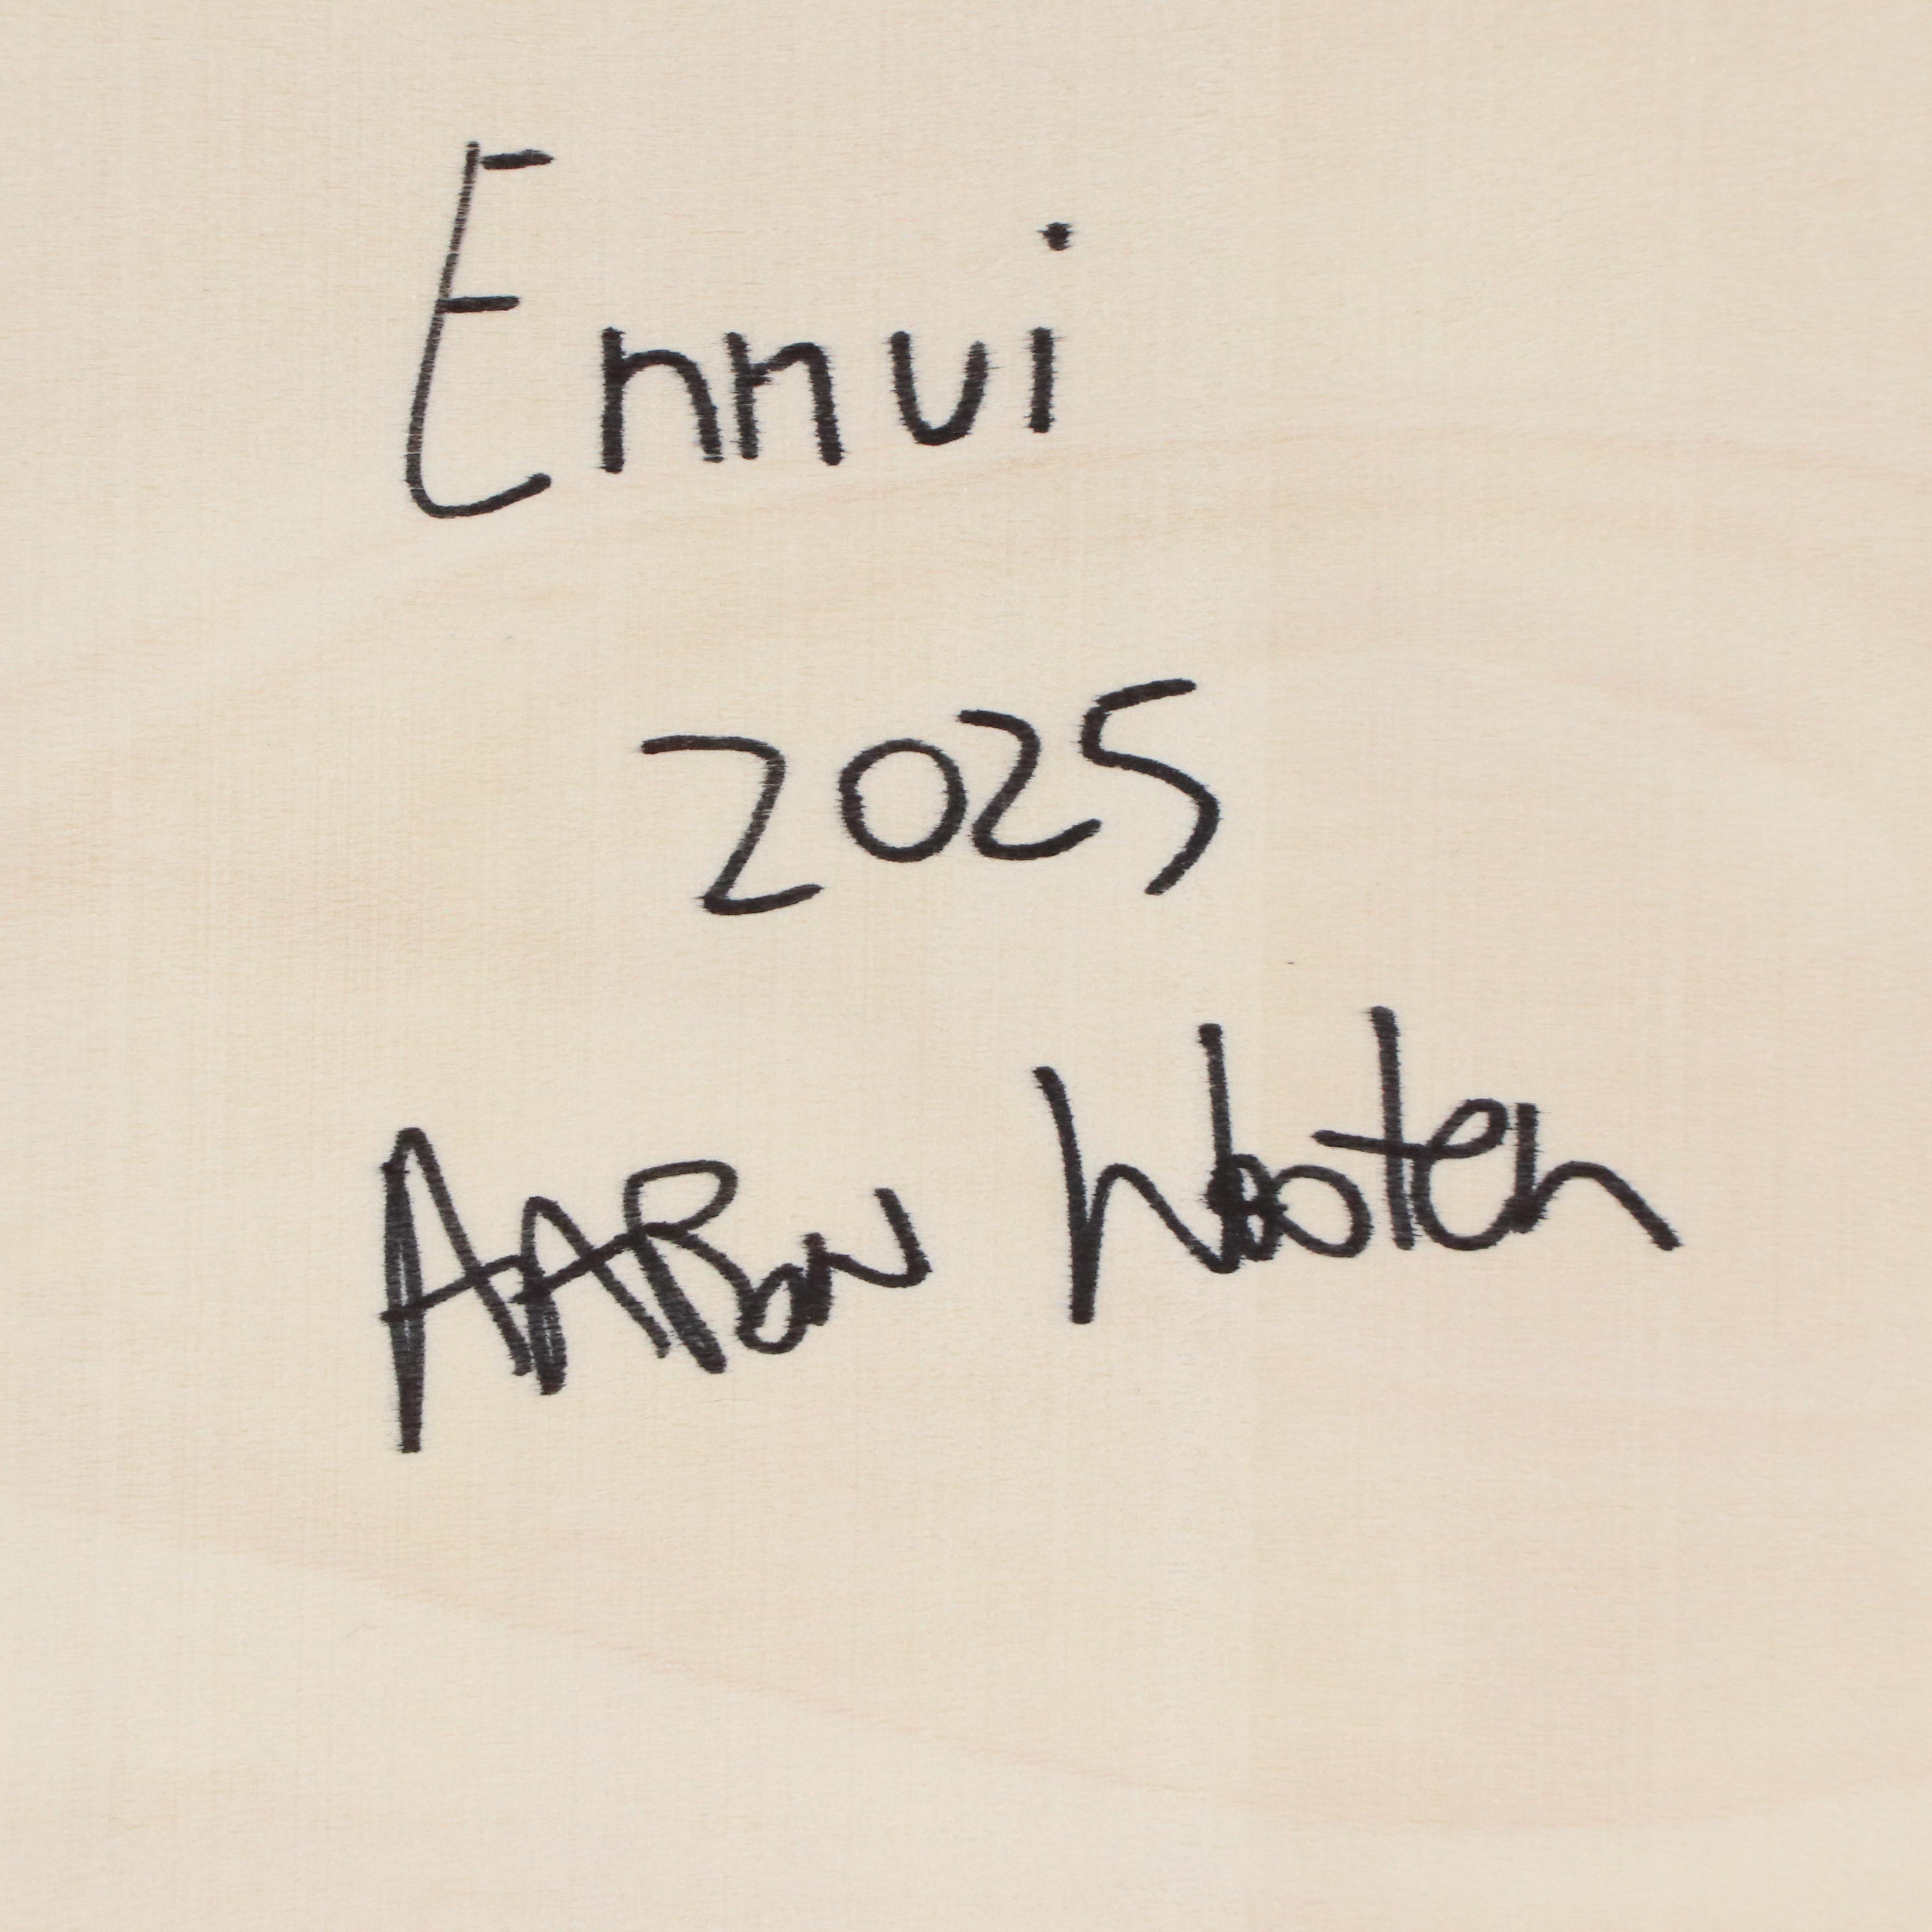 Ennui
2025
AARon Wooten